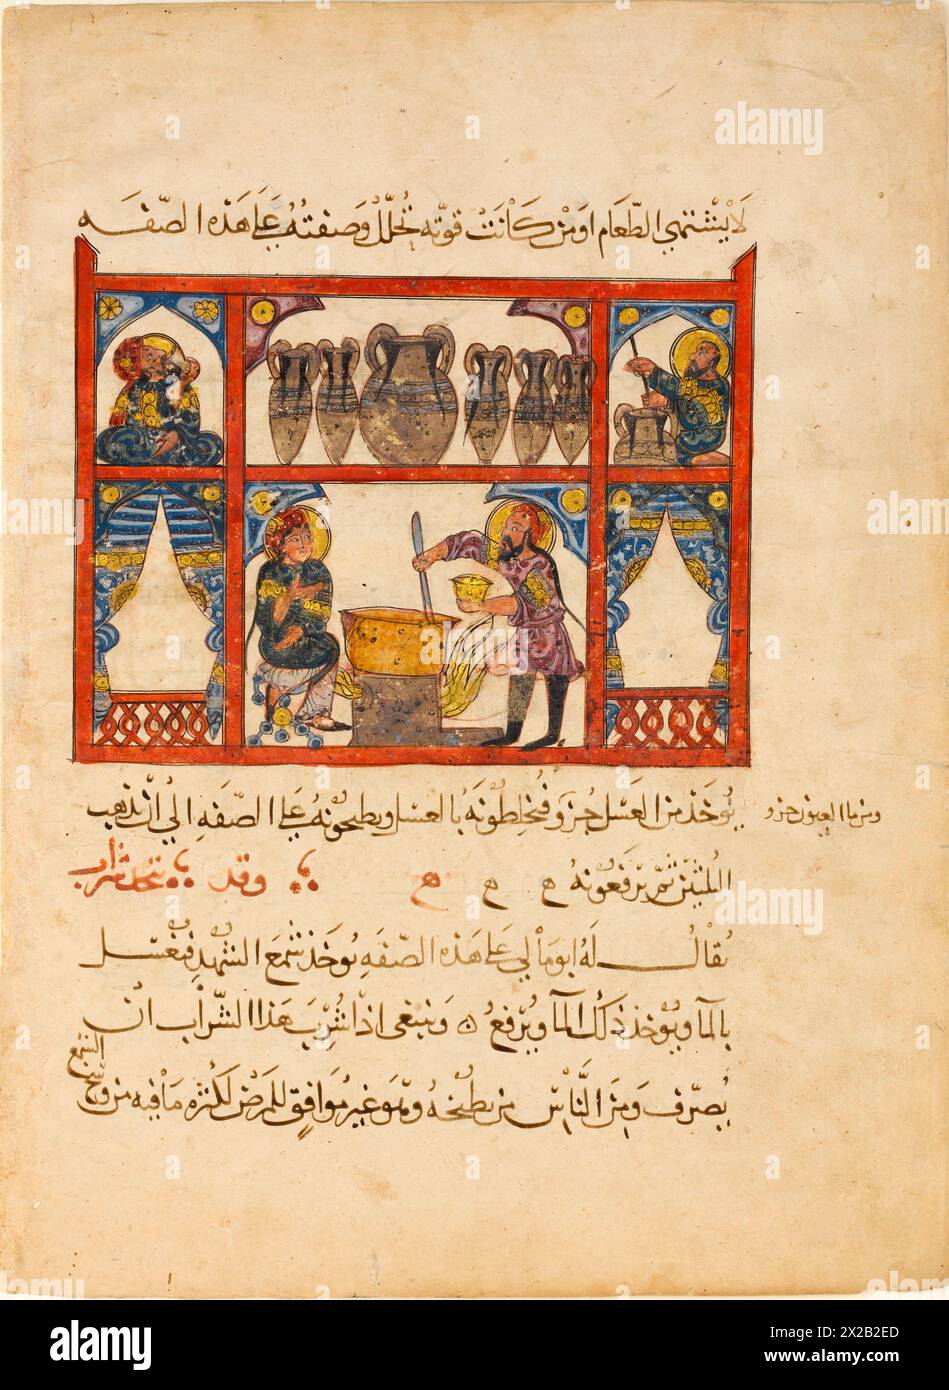 لَا يَشْتَهِي الطَّعَامِ اَوْمَنْ كَانَتْ قُوّته تُحَلّلُ وَصِفَتُهُ عَلَى هَذِهِ الصّفَه
يُوخَذ مِنَ العَسَلِ جُزو فَيُخلِطُونَهُ بالعَسَل ويَطبخُونهُ عَلَى الصّفَهِ اِلَى اَنْ يَذْهَبَ
وَمن ماء العيون جزو
الثلثين ثمّ يَرفَعُونَهُ ه ه ه وقد يتخذ شراب
يُقَالُ لَهُ ابومالي عَلَى هَذِهِ الصّفَهِ يُوخَذ شَمَعَ الشَهْدِ فيغسَل
بالمَا ويُوخَذ ذَلكَ المَا ويُرفعُ ه وَينبَغى اِذَا شُرِبَ هَذَا الشّرَاب اَنْ
يُصرّف وَمِنَ النَّاسِ من يطبخهُ وهُوَ غير مُوَافِقٍ للمَرضَى لَكثرَه مَا فيه من وسخ
الشمع
alamy
Image ID: 2X2B2ED
www.alamy.com